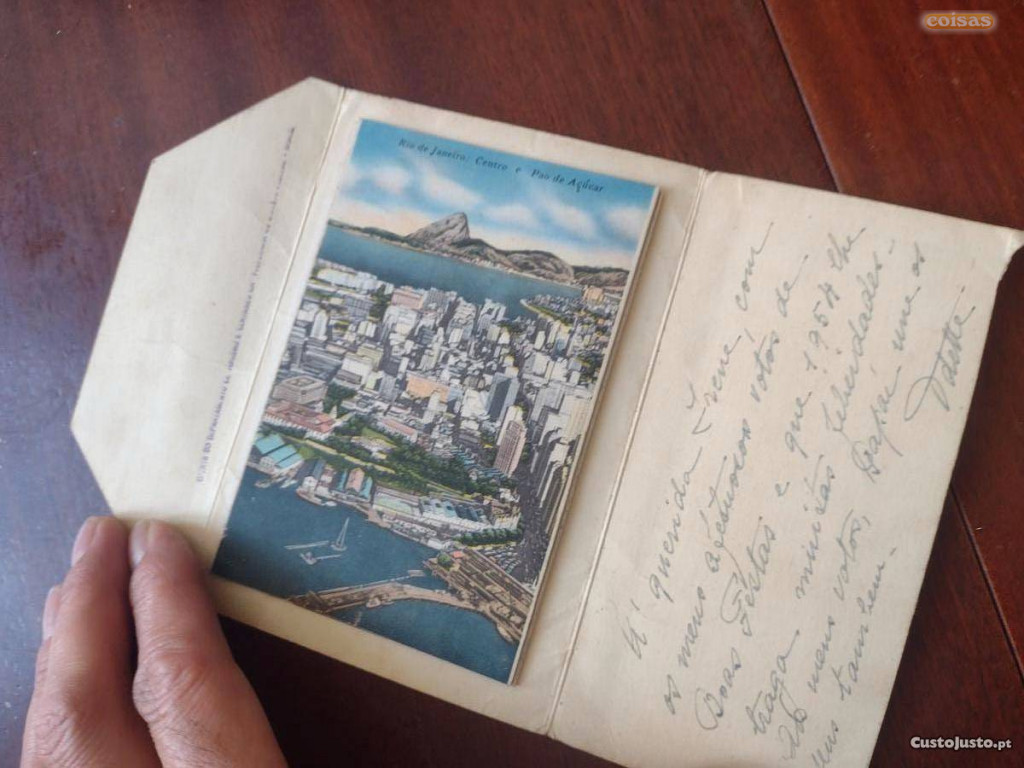 coisas
Rio de Janeiro: Centro e Pão de Açúcar
À querida Irene, com
os meus afetuosos votos de
Boas Festas e que 1954 lhe
traga muitas felicidades.
meus votos, Papai une os
seus também.
CustoJusto.pt